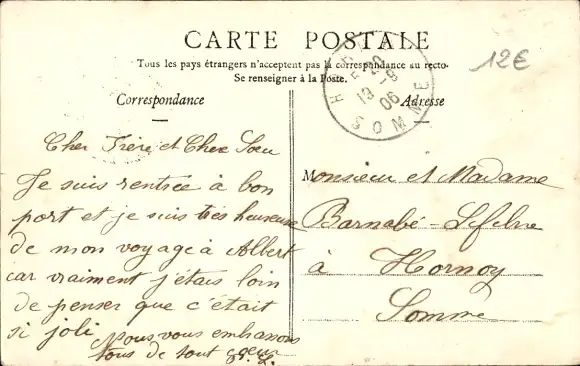 CARTE POSTALE
Tous les pays étrangers n'acceptent pas la correspondance au recto.
Se renseigner à la Poste.
12€
5 20
19 -9
06
SOMME
Correspondance
Adresse
Cher Frère et Chère Soeur
Je suis rentrée à bon
port et je suis très heureuse
de mon voyage à Albert
car vraiment j'étais loin
de penser que c'était
si joli Nous vous embrassons
tous de tout coeur
Monsieur et Madame
Barnabé-Lefebvre
à Hornoy
Somme